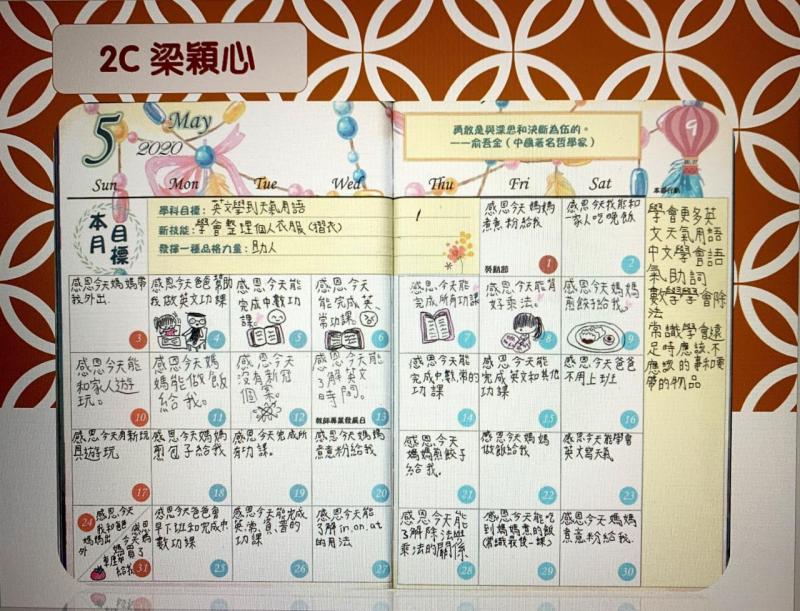 2C 梁穎心
5 May
2020
勇敢是與深思和決斷為伍的。
——俞吾金（中國著名哲學家）
9
Sun Mon Tue Wed Thu Fri Sat
本月目標
學科目標：英文學到天氣用語
新技能：學會整理個人衣服（摺衣）
發揮一種品格力量：助人
1
感恩今天媽媽
煮煮粉給我
勞動節
1
感恩今天我能和
一家人吃晚飯
2
學會更多英
文天氣用語
中文學會語
氣助詞
數學學會除
法
常識學會遠
足時應該、不
應該的事和要
帶的物品
感恩今天媽媽帶
我外出。
3
感恩今天爸爸幫助
我做英文功課
4
感恩今天能
完成中數功
課。
5
感恩今天
能完成英
常功課。
6
感恩今天能
完成所有功課
7
感恩今天能背
好乘法。
8
感恩今天媽媽
煎餃子給我。
9
感恩今天能
和家人遊
玩。
10
感恩今天媽
媽能做飯
給我。
11
感恩今天
沒有新冠
個案。
12
感恩今天能
了解英文
時間。
教師專業發展日
13
感恩今天能
完成中數、常的
功課
14
感恩今天能
完成英文和其他
功課
15
感恩今天爸爸
不用上班
16
感恩今天有新玩
具遊玩
17
感恩今天媽媽
煎包子給我
18
感恩今天完成所
有功課。
19
感恩今天媽媽
煮意粉給我
20
感恩今天
媽媽煎餃子
給我。
21
感恩今天媽媽
做飯給我
22
感恩今天能學會
英文寫天氣
23
24
感恩今天
我和爸
媽媽出
外
感恩
今天
媽媽買了
草莓
給我
31
感恩今天爸爸會
早下班和完成中
數功課
25
感恩今天能完成
英、常、普的
功課
26
感恩今天能
了解in,on,at
的用法
27
感恩今天能
了解除法與
乘法的關係
28
感恩今天能吃
到媽媽煮的飯
29
感恩今天媽媽
煮意粉給我
30